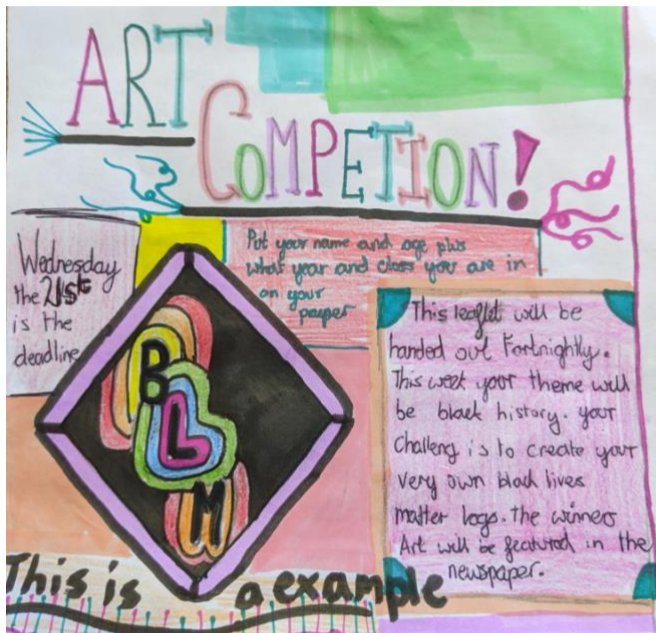 ART
COMPETION!
Wednesday
the 21st
is the
deadline
Put your name and age plus
what year and class you are in
on your
payper
BLM
This leaflet will be
handed out Fortnightly.
This week your theme will
be black history. your
Challeng is to create your
very own black lives
matter logo. the winners
Art will be featured in the
newspaper.
This is a example